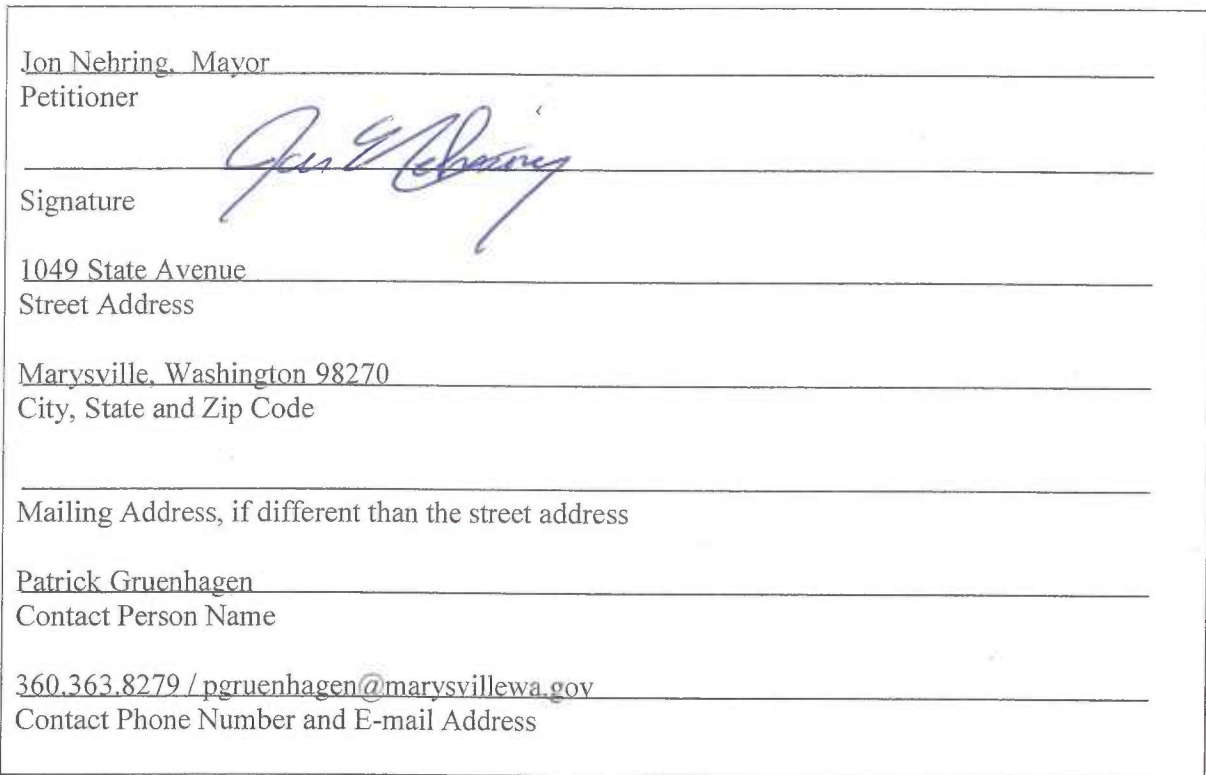 Jon Nehring, Mayor
Petitioner
Jon Nehring
Signature
1049 State Avenue
Street Address
Marysville, Washington 98270
City, State and Zip Code
Mailing Address, if different than the street address
Patrick Gruenhagen
Contact Person Name
360.363.8279 / pgruenhagen@marysvillewa.gov
Contact Phone Number and E-mail Address